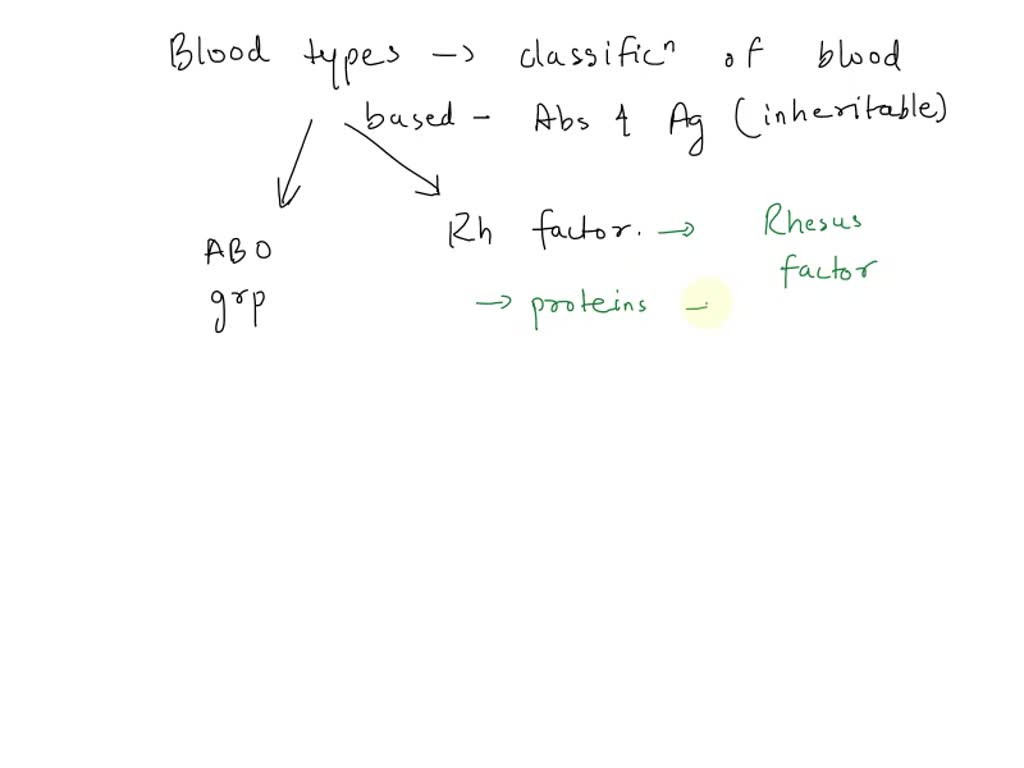 Blood types → classificⁿ of blood
based - Abs & Ag (inheritable)
ABO
grp
Rh factor. → Rhesus
factor
→ proteins -